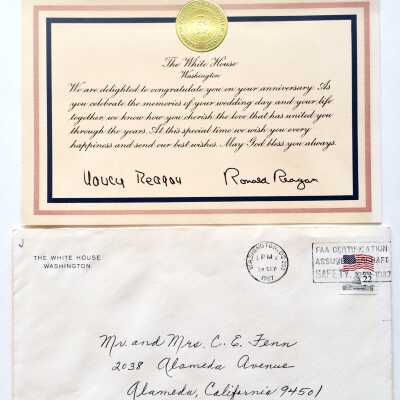 The White House
Washington
We are delighted to congratulate you on your anniversary. As
you celebrate the memories of your wedding day and your life
together, we know how you cherish the love that has united you
through the years. At this special time we wish you every
happiness and send our best wishes. May God bless you always.
Nancy Reagan Ronald Reagan
THE WHITE HOUSE
WASHINGTON
WASHINGTON, DC
PM
SEP
1987
FAA CERTIFICATION
SAFETY
22
Mr. and Mrs. C. E. Fenn
2038 Alameda Avenue
Alameda, California 94501